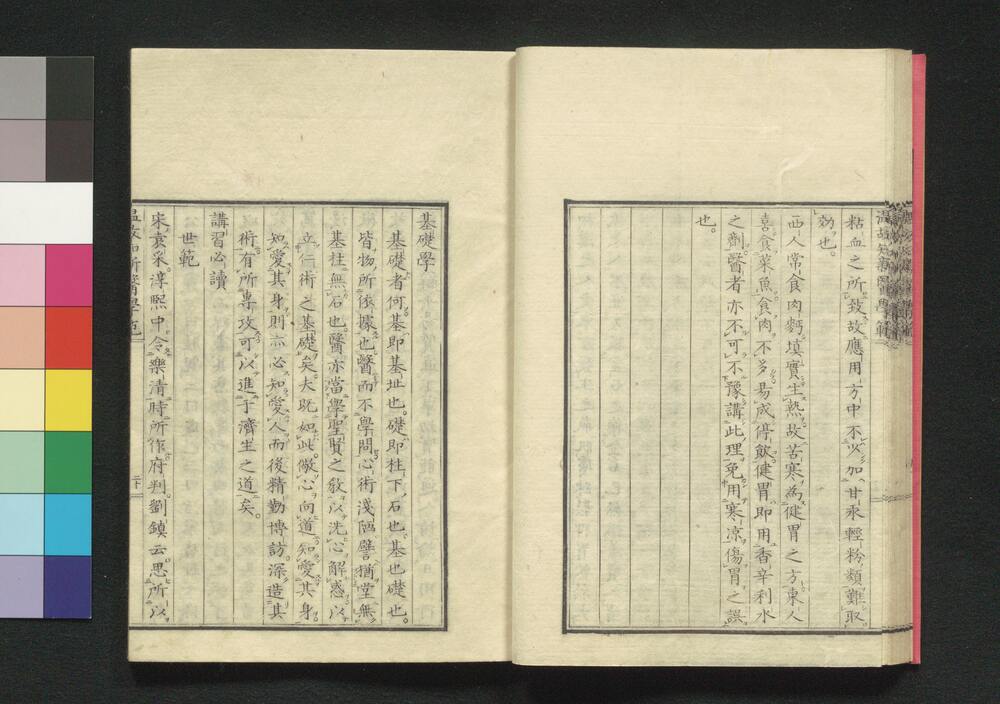 粘血之所致故應用方中不必加甘汞輕粉類難取
効也。
西人常食肉麪填實生熱故苦寒為健胃之方東人
喜食菜魚食肉不多易成停飲健胃即用香辛利水
之劑醫者亦不可不豫講此理免用寒凉傷胃之誤
也。
基礎學
基礎者何基即基址也。礎即柱下石也。基也礎也。
皆物所依據也醫而不學問心術淺陋譬猶堂無
基柱無石也。醫亦當學聖賢之教以洗心解惑以
立行術之基礎矣。夫既如此儆心向道知愛其身。
知愛其身則亦必知愛人而後精勤博訪深造其
術有所專攻可以進于濟生之道矣。
講習必讀
世範
宋袁采淳熙中令樂清時所作府判劉鎮云思所以